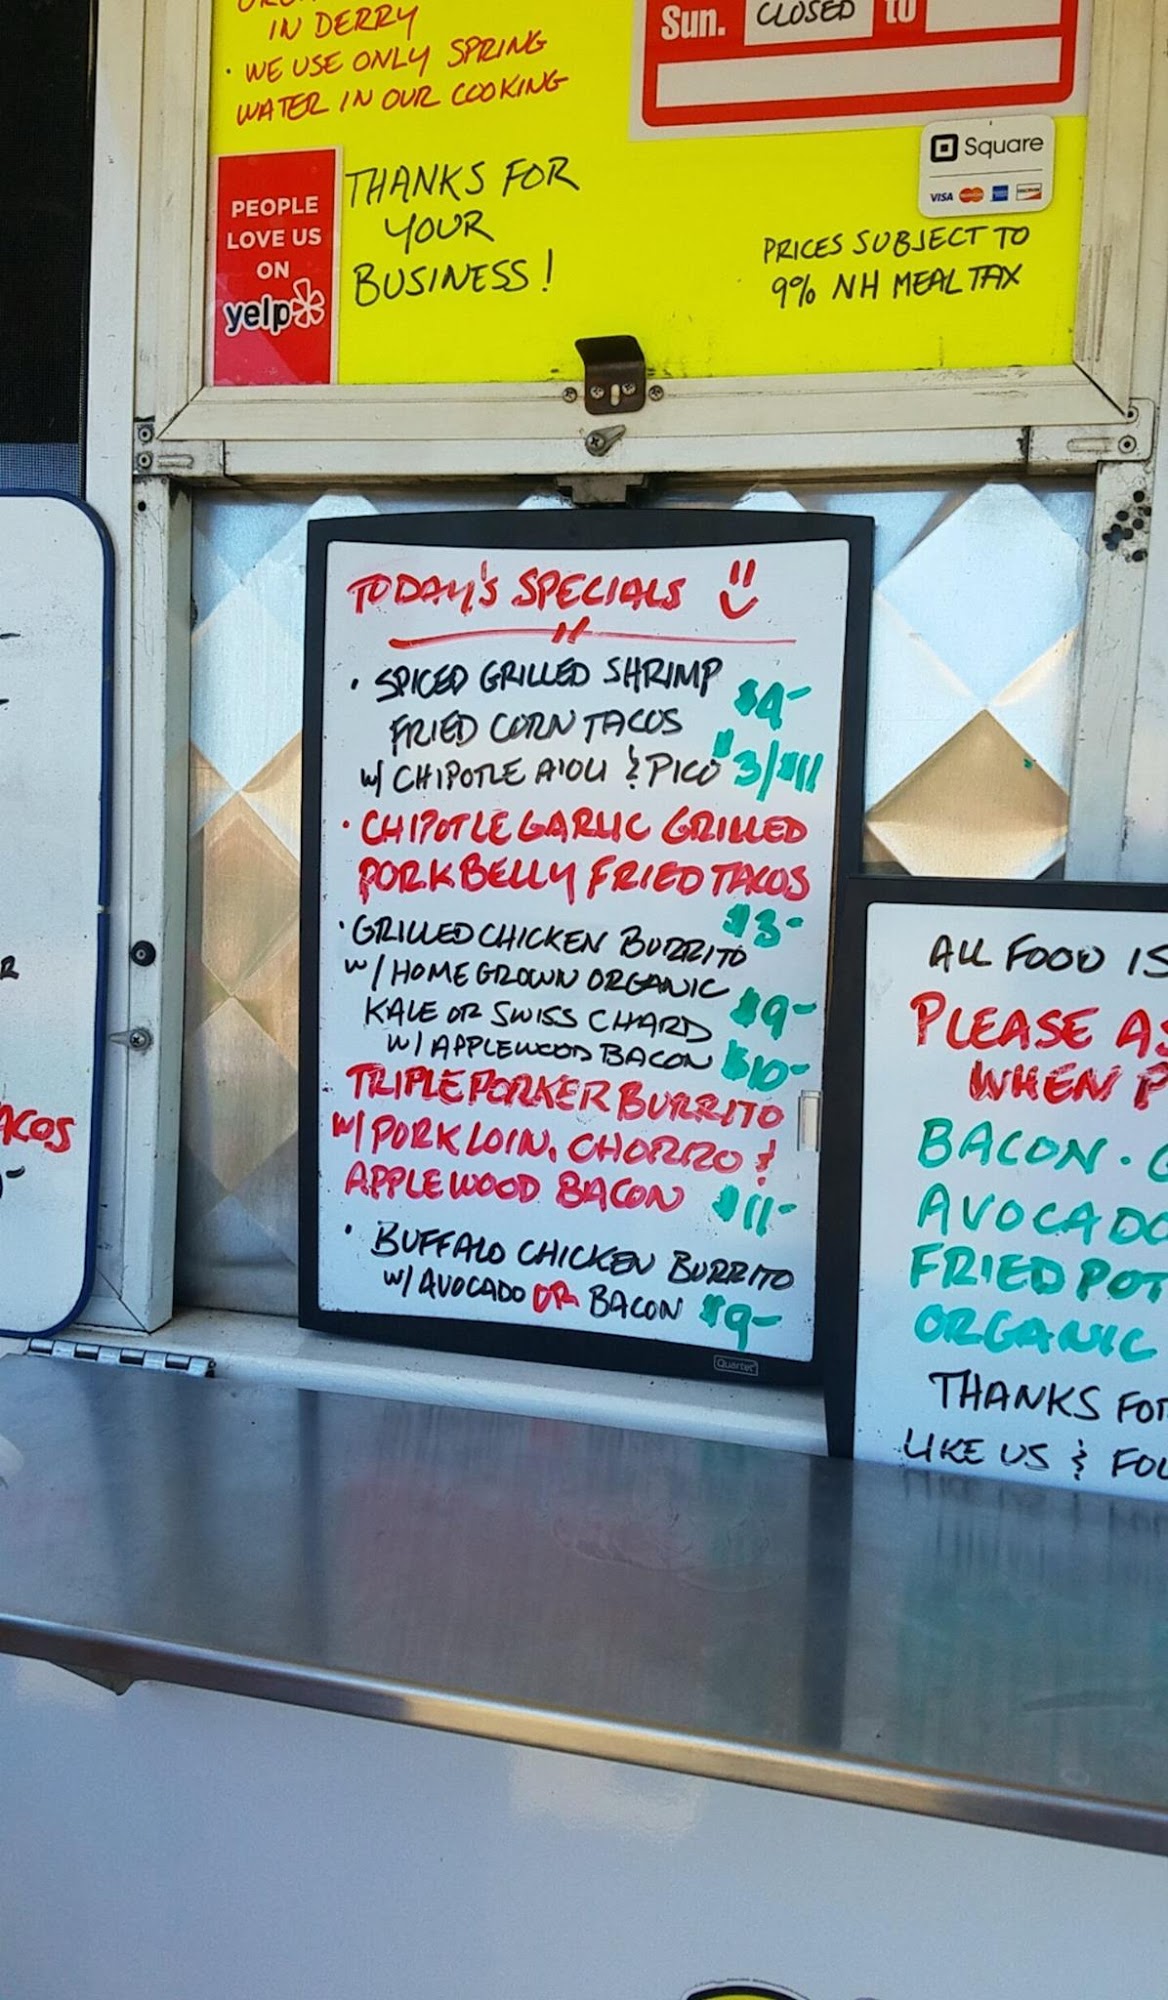 IN DERRY
• WE USE ONLY SPRING
WATER IN OUR COOKING
Sun. CLOSED to
Square
VISA
PEOPLE
LOVE US
ON
yelp
THANKS FOR
YOUR
BUSINESS!
PRICES SUBJECT TO
9% NH MEAL TAX
TODAY'S SPECIALS
• SPICED GRILLED SHRIMP
FRIED CORN TACOS $4-
W/ CHIPOTLE AIOLI & PICO $3/$11
• CHIPOTLE GARLIC GRILLED
PORK BELLY FRIED TACOS
$3-
• GRILLED CHICKEN BURRITO
W/ HOMEGROWN ORGANIC
KALE OR SWISS CHARD $9-
W/ APPLEWOOD BACON $10-
TRIPLE PORKER BURRITO
W/ PORK LOIN, CHORIZO &
APPLEWOOD BACON $11-
• BUFFALO CHICKEN BURRITO
W/ AVOCADO OR BACON $9-
Quartet
ACOS
ALL FOOD IS
PLEASE AS
WHEN P
BACON •
AVOCADO
FRIED POT
ORGANIC
THANKS FOR
LIKE US & FOL